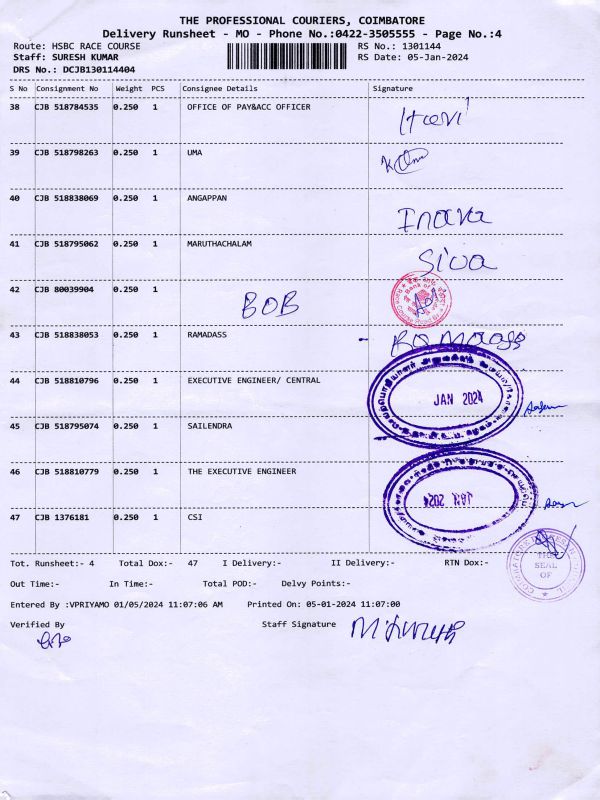 THE PROFESSIONAL COURIERS, COIMBATORE
Delivery Runsheet - MO - Phone No.:0422-3505555 - Page No.:4
Route: HSBC RACE COURSE RS No.: 1301144
Staff: SURESH KUMAR RS Date: 05-Jan-2024
DRS No.: DCJB130114404
S No Consignment No Weight PCS Consignee Details Signature
38 CJB 518784535 0.250 1 OFFICE OF PAY&ACC OFFICER
39 CJB 518798263 0.250 1 UMA
40 CJB 518838069 0.250 1 ANGAPPAN
41 CJB 518795062 0.250 1 MARUTHACHALAM Siva
42 CJB 80039904 0.250 1 BOB
43 CJB 518838053 0.250 1 RAMADASS
44 CJB 518810796 0.250 1 EXECUTIVE ENGINEER/ CENTRAL
JAN 2024
45 CJB 518795074 0.250 1 SAILENDRA
46 CJB 518810779 0.250 1 THE EXECUTIVE ENGINEER
JAN 2024
47 CJB 1376181 0.250 1 CSI
SEAL
OF
Tot. Runsheet:- 4 Total Dox:- 47 I Delivery:- II Delivery:- RTN Dox:-
Out Time:- In Time:- Total POD:- Delvy Points:-
Entered By :VPRIYAMO 01/05/2024 11:07:06 AM Printed On: 05-01-2024 11:07:00
Verified By Staff Signature